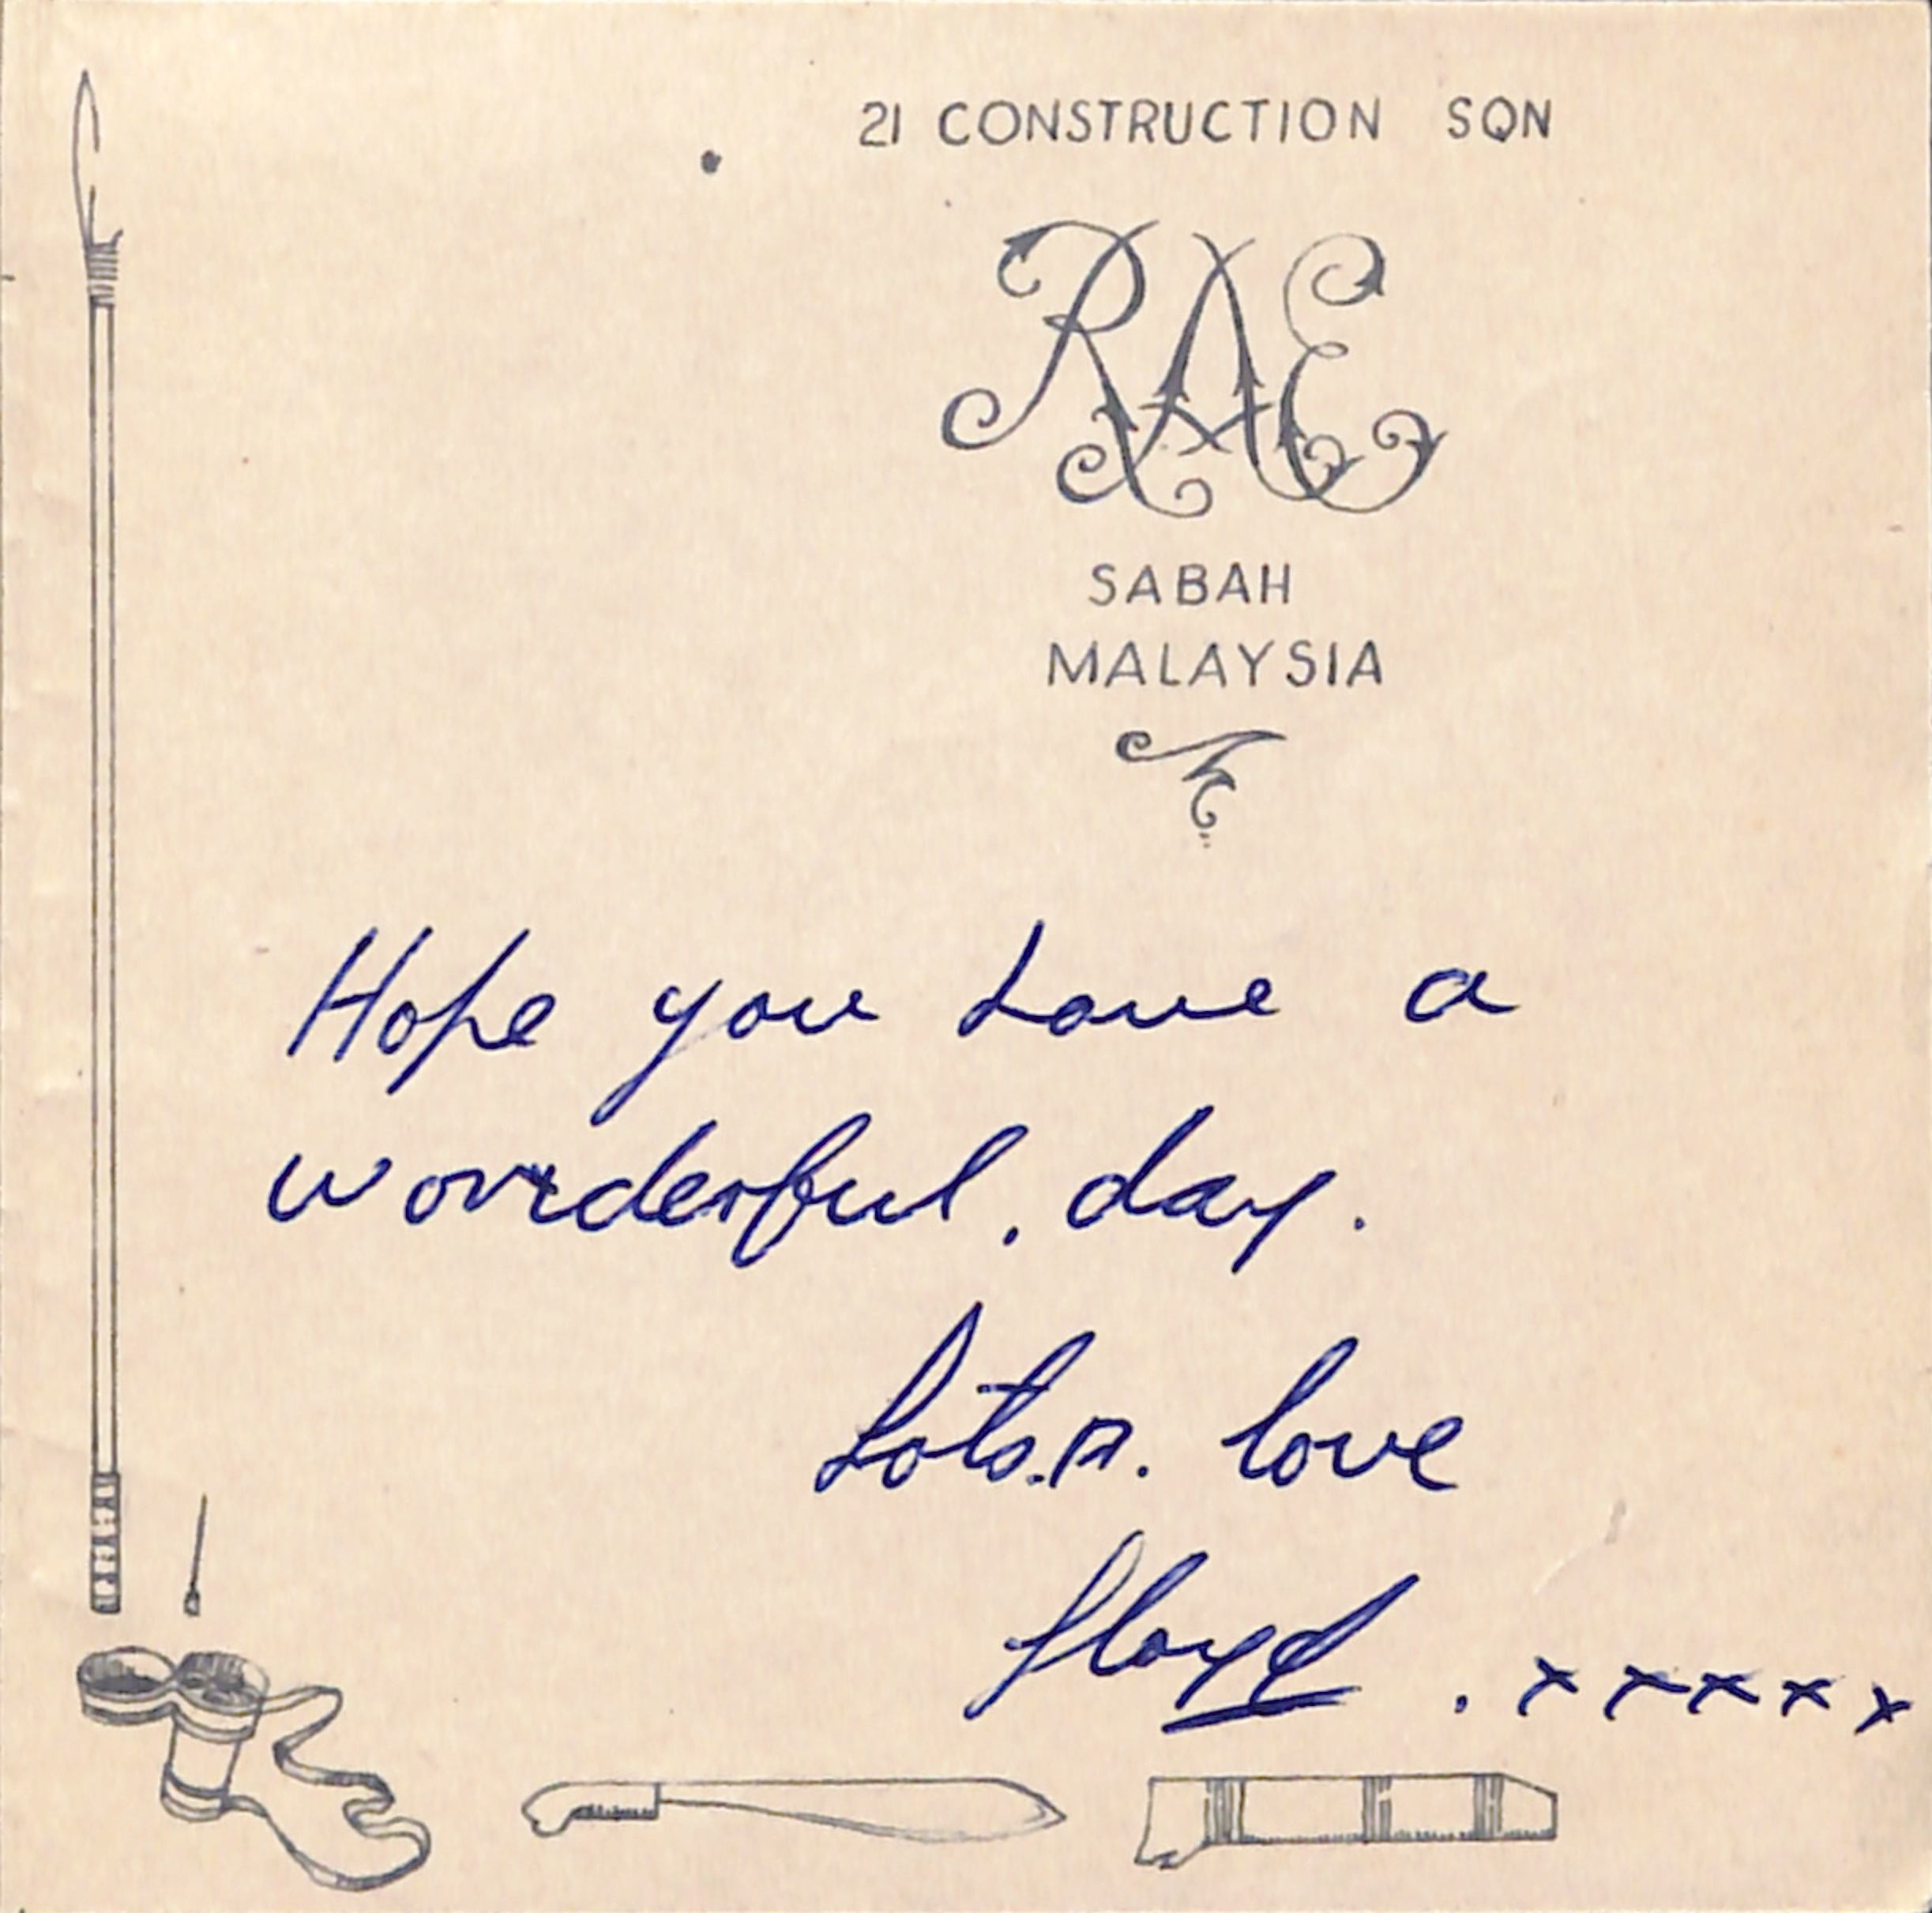 21 CONSTRUCTION SQN
RAE
SABAH
MALAYSIA
Hope you have a
wonderful. day.
Lots.n. love
floyd . xxxxx